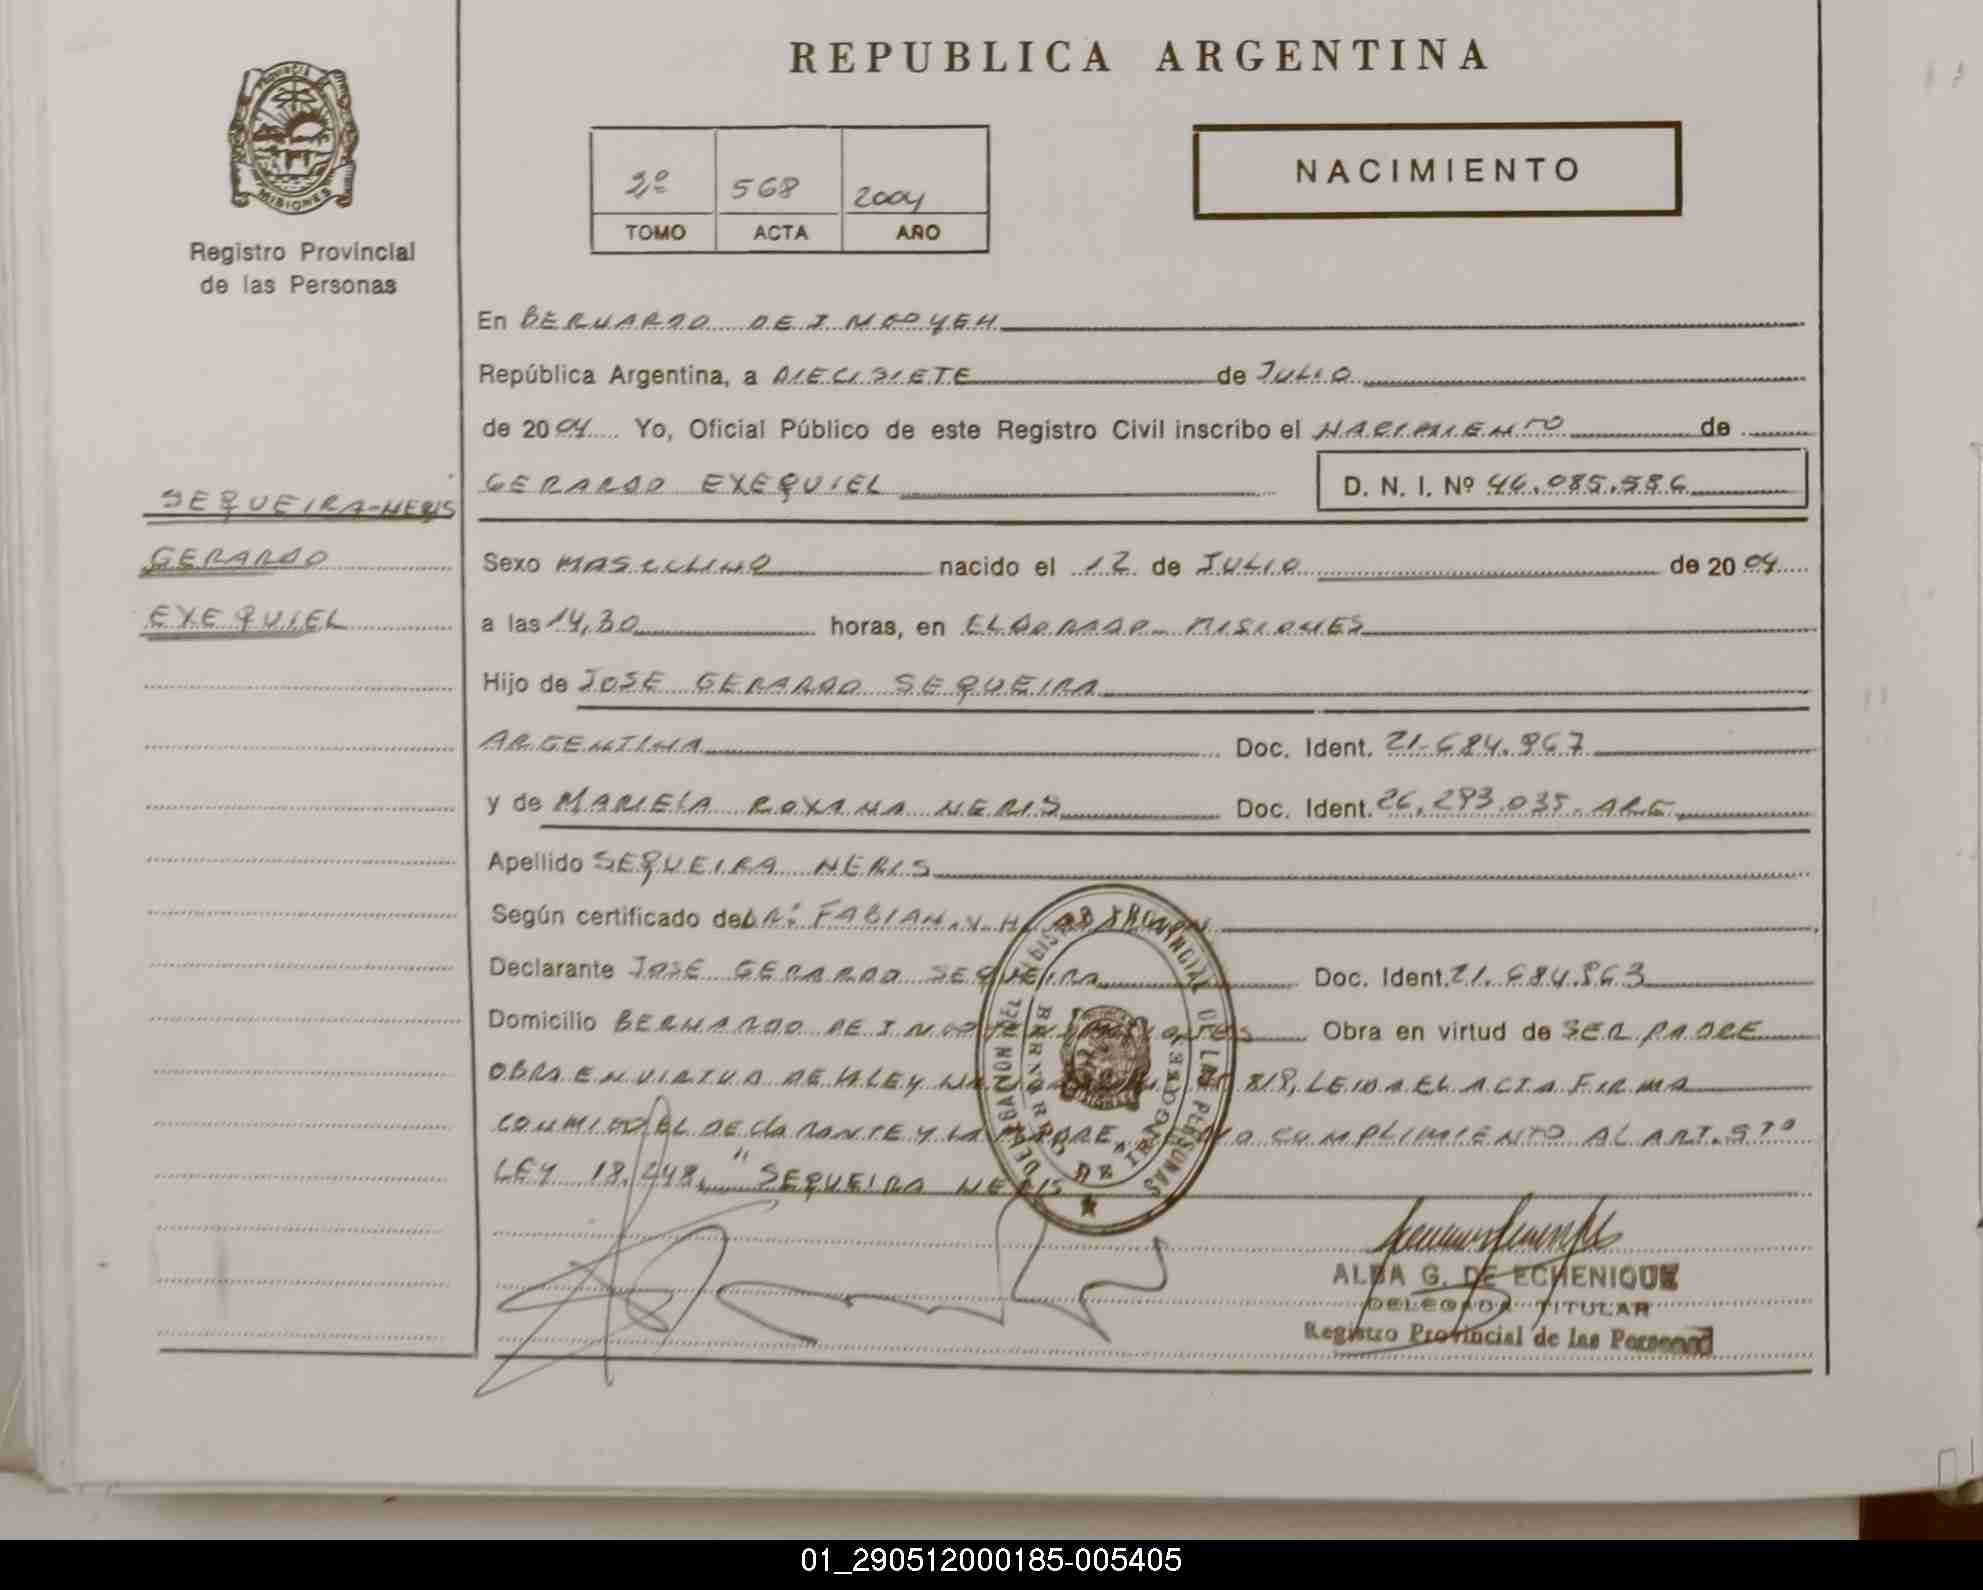 REPUBLICA ARGENTINA
PROVINCIA DE MISIONES
Registro Provincial
de las Personas
2º 568 2004
TOMO ACTA AÑO
NACIMIENTO
En BERNARDO DE IRIGOYEN
República Argentina, a DIECISIETE de JULIO
de 2004 Yo, Oficial Público de este Registro Civil inscribo el NACIMIENTO de
GERARDO EXEQUIEL D. N. I. Nº 46.085.586
SEQUEIRA-NERIS
GERARDO
EXEQUIEL
Sexo MASCULINO nacido el 12 de JULIO de 2004
a las 14,30 horas, en ELDORADO MISIONES
Hijo de JOSE GERARDO SEQUEIRA
ARGENTINA Doc. Ident. 21.684.
y de MARIELA ROXANA NERIS Doc. Ident. 26.293.035. ARG
Apellido SEQUEIRA NERIS
Según certificado del DR: FABIAN. V. H.
Declarante JOSE GERARDO SEQUEIRA Doc. Ident. 21.684.
Domicilio BERNARDO DE Obra en virtud de SER PADRE
OBRA EN VIRTUD DE LA LEY LEIDA EL ACTA FIRMA
CONMIGO EL DECLARANTE Y LA MADRE CUMPLIMIENTO AL ART. 5TO
LEY 18.248. " SEQUEIRA NERIS
DELEGACION DEL REGISTRO PROVINCIAL DE LAS PERSONAS
BERNARDO DE IRIGOYEN
ALBA G. DE ECHENIQUE
DELEGADA TITULAR
Registro Provincial de las Personas
01_290512000185-005405